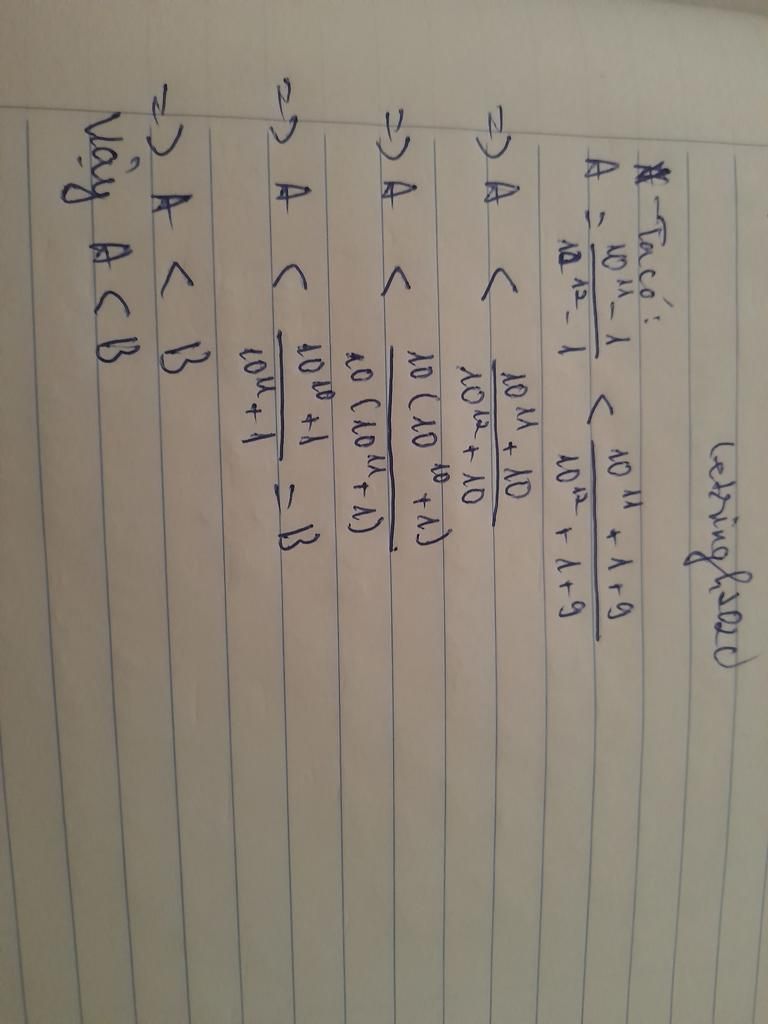 - Ta có:
A = \frac{10^{11} - 1}{12^{12} - 1} < \frac{10^{11} + 1 + 9}{10^{12} + 1 + 9}
=> A < \frac{10^{11} + 10}{10^{12} + 10}
=> A < \frac{10(10^{10} + 1)}{10(10^{11} + 1)}
=> A < \frac{10^{10} + 1}{10^{11} + 1} = B
=> A < B
Vậy A < B